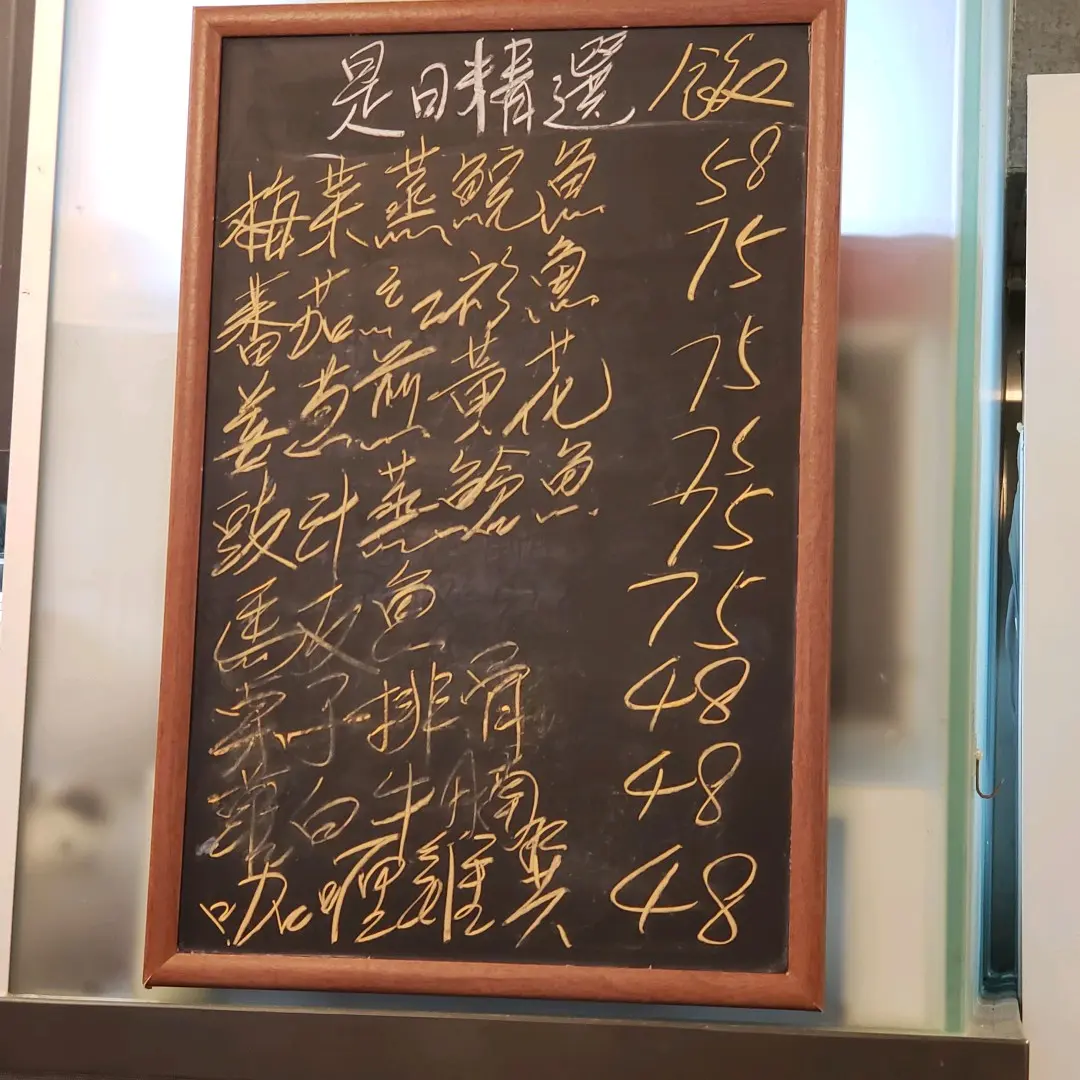 是日精選 飯
梅菜蒸鯇魚 58
番茄煮紅衫魚 75
姜葱煎黃花 75
75
豉汁蒸魚 75
馬友魚 75
栗子排骨 48
白牛腩 48
咖喱雞翼 48